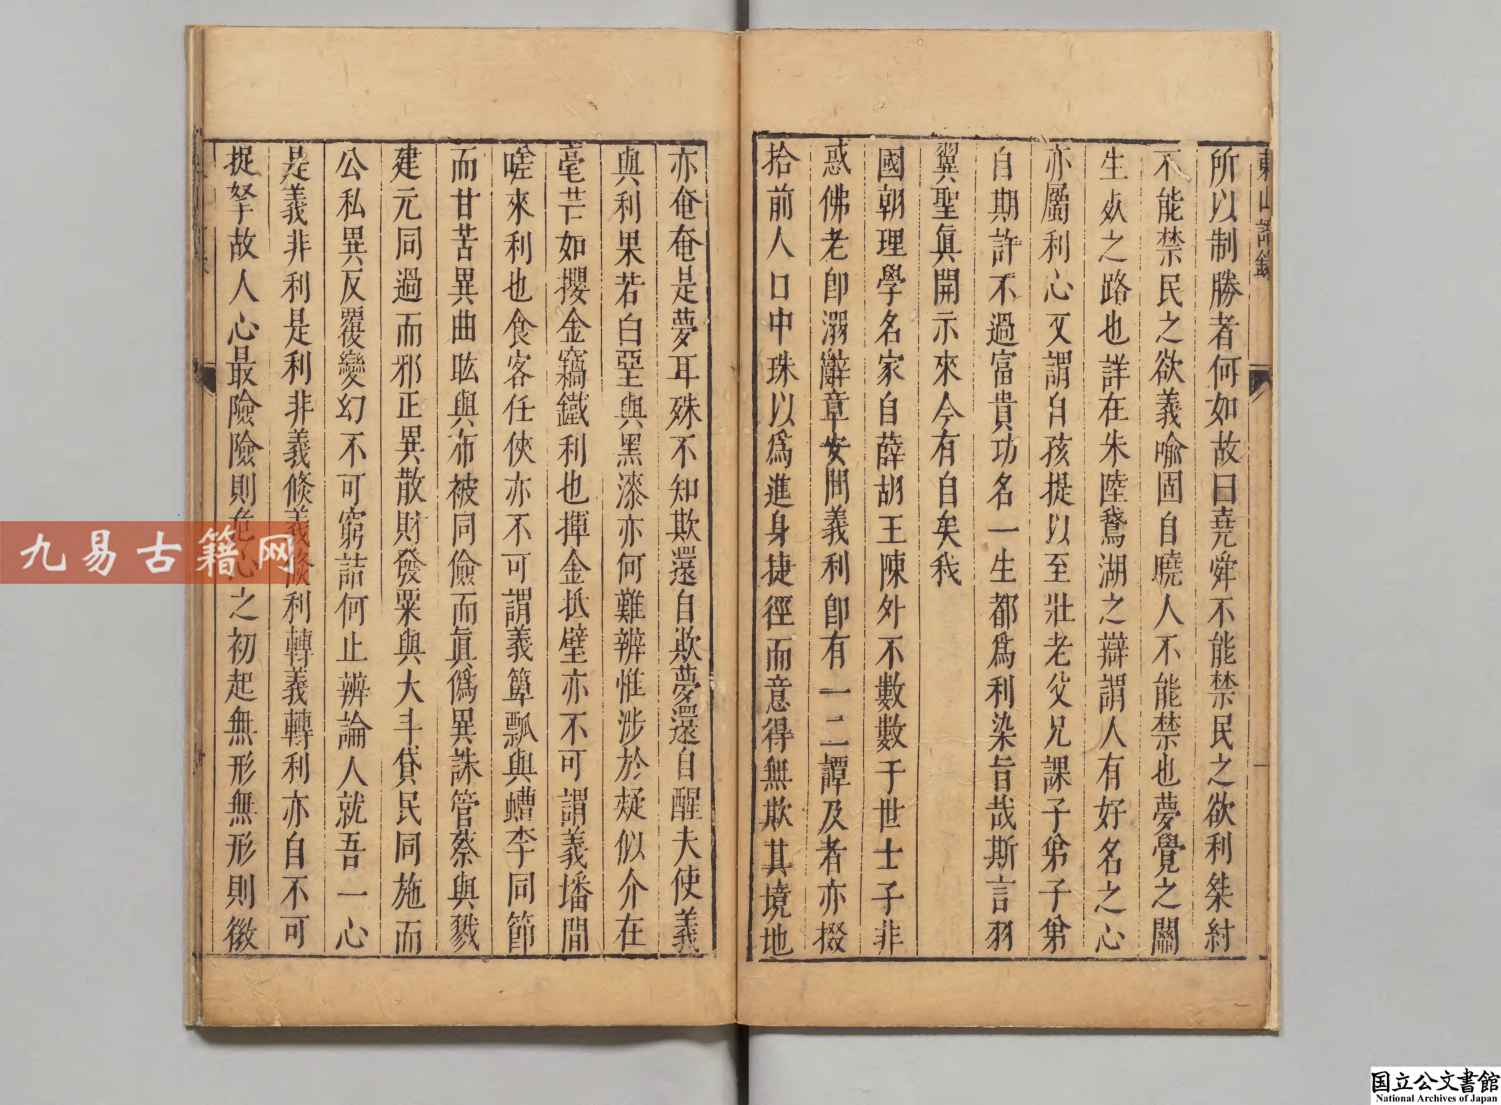 東山語錄
所以制勝者何如故曰堯舜不能禁民之欲利桀紂
不能禁民之欲義喻固自曉人不能禁也夢覺之關
生㱐之路也詳在朱陸鵞湖之辯謂人有好名之心
亦屬利心又謂自孩提以至壯老父兄課子弟子弟
自期許不過富貴功名一生都為利染旨哉斯言羽
翼聖眞開示來今有自矣我
國朝理學名家自薛胡王陳外不數數于世士子非
惑佛老卽溺辭章安問義利卽有一二譚及者亦掇
拾前人口中珠以爲進身捷徑而意得無欺其境地
亦奄奄是夢耳殊不知欺還自欺夢還自醒夫使義
與利果若白堊與黑漆亦何難辨惟涉於疑似介在
毫芒如攖金竊鐵利也揮金抵壁亦不可謂義墦間
嗟來利也食客任俠亦不可謂義簞瓢與螬李同節
而甘苦異曲肱與布被同儉而眞僞異誅管蔡與戮
建元同過而邪正異散財發粟與大斗貸民同施而
公私異反覆變幻不可窮詰何止辨論人就吾一心
是義非利是利非義倐義倐利轉義轉利亦自不可
捉拏故人心最險險則危心之初起無形無形則微
九易古籍网
国立公文書館
National Archives of Japan